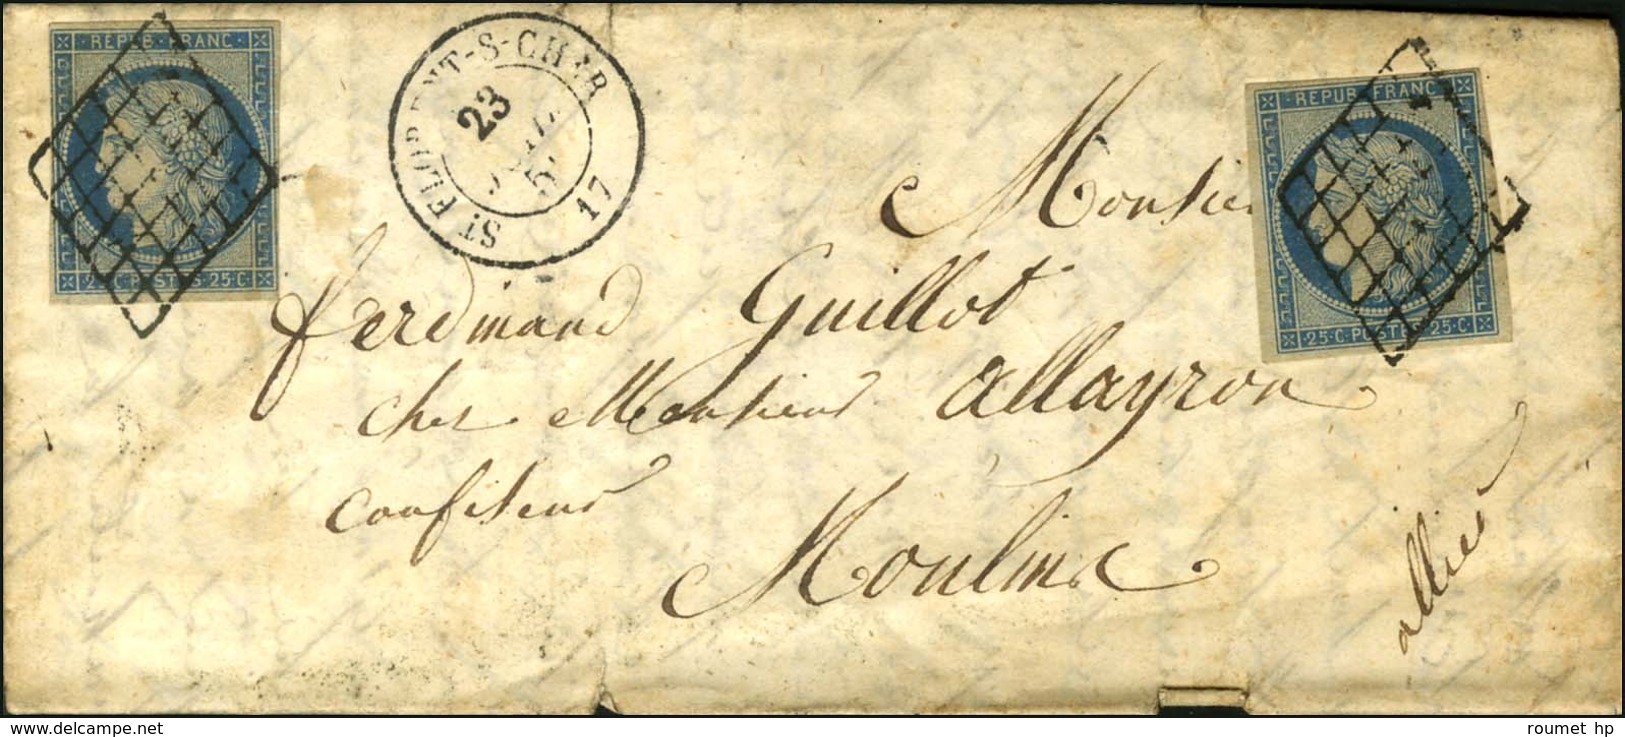 REPUB FRANC
ST FLORENT-S-CHER
23
17
REPUB FRANC
25·C POSTES 25·C
25·C·POSTES 25·C
Monsieur
ferdinand Guillot
chez Monsieur allayron
confiseur
Moulins
allier
www.delcampe.net
roumet hp